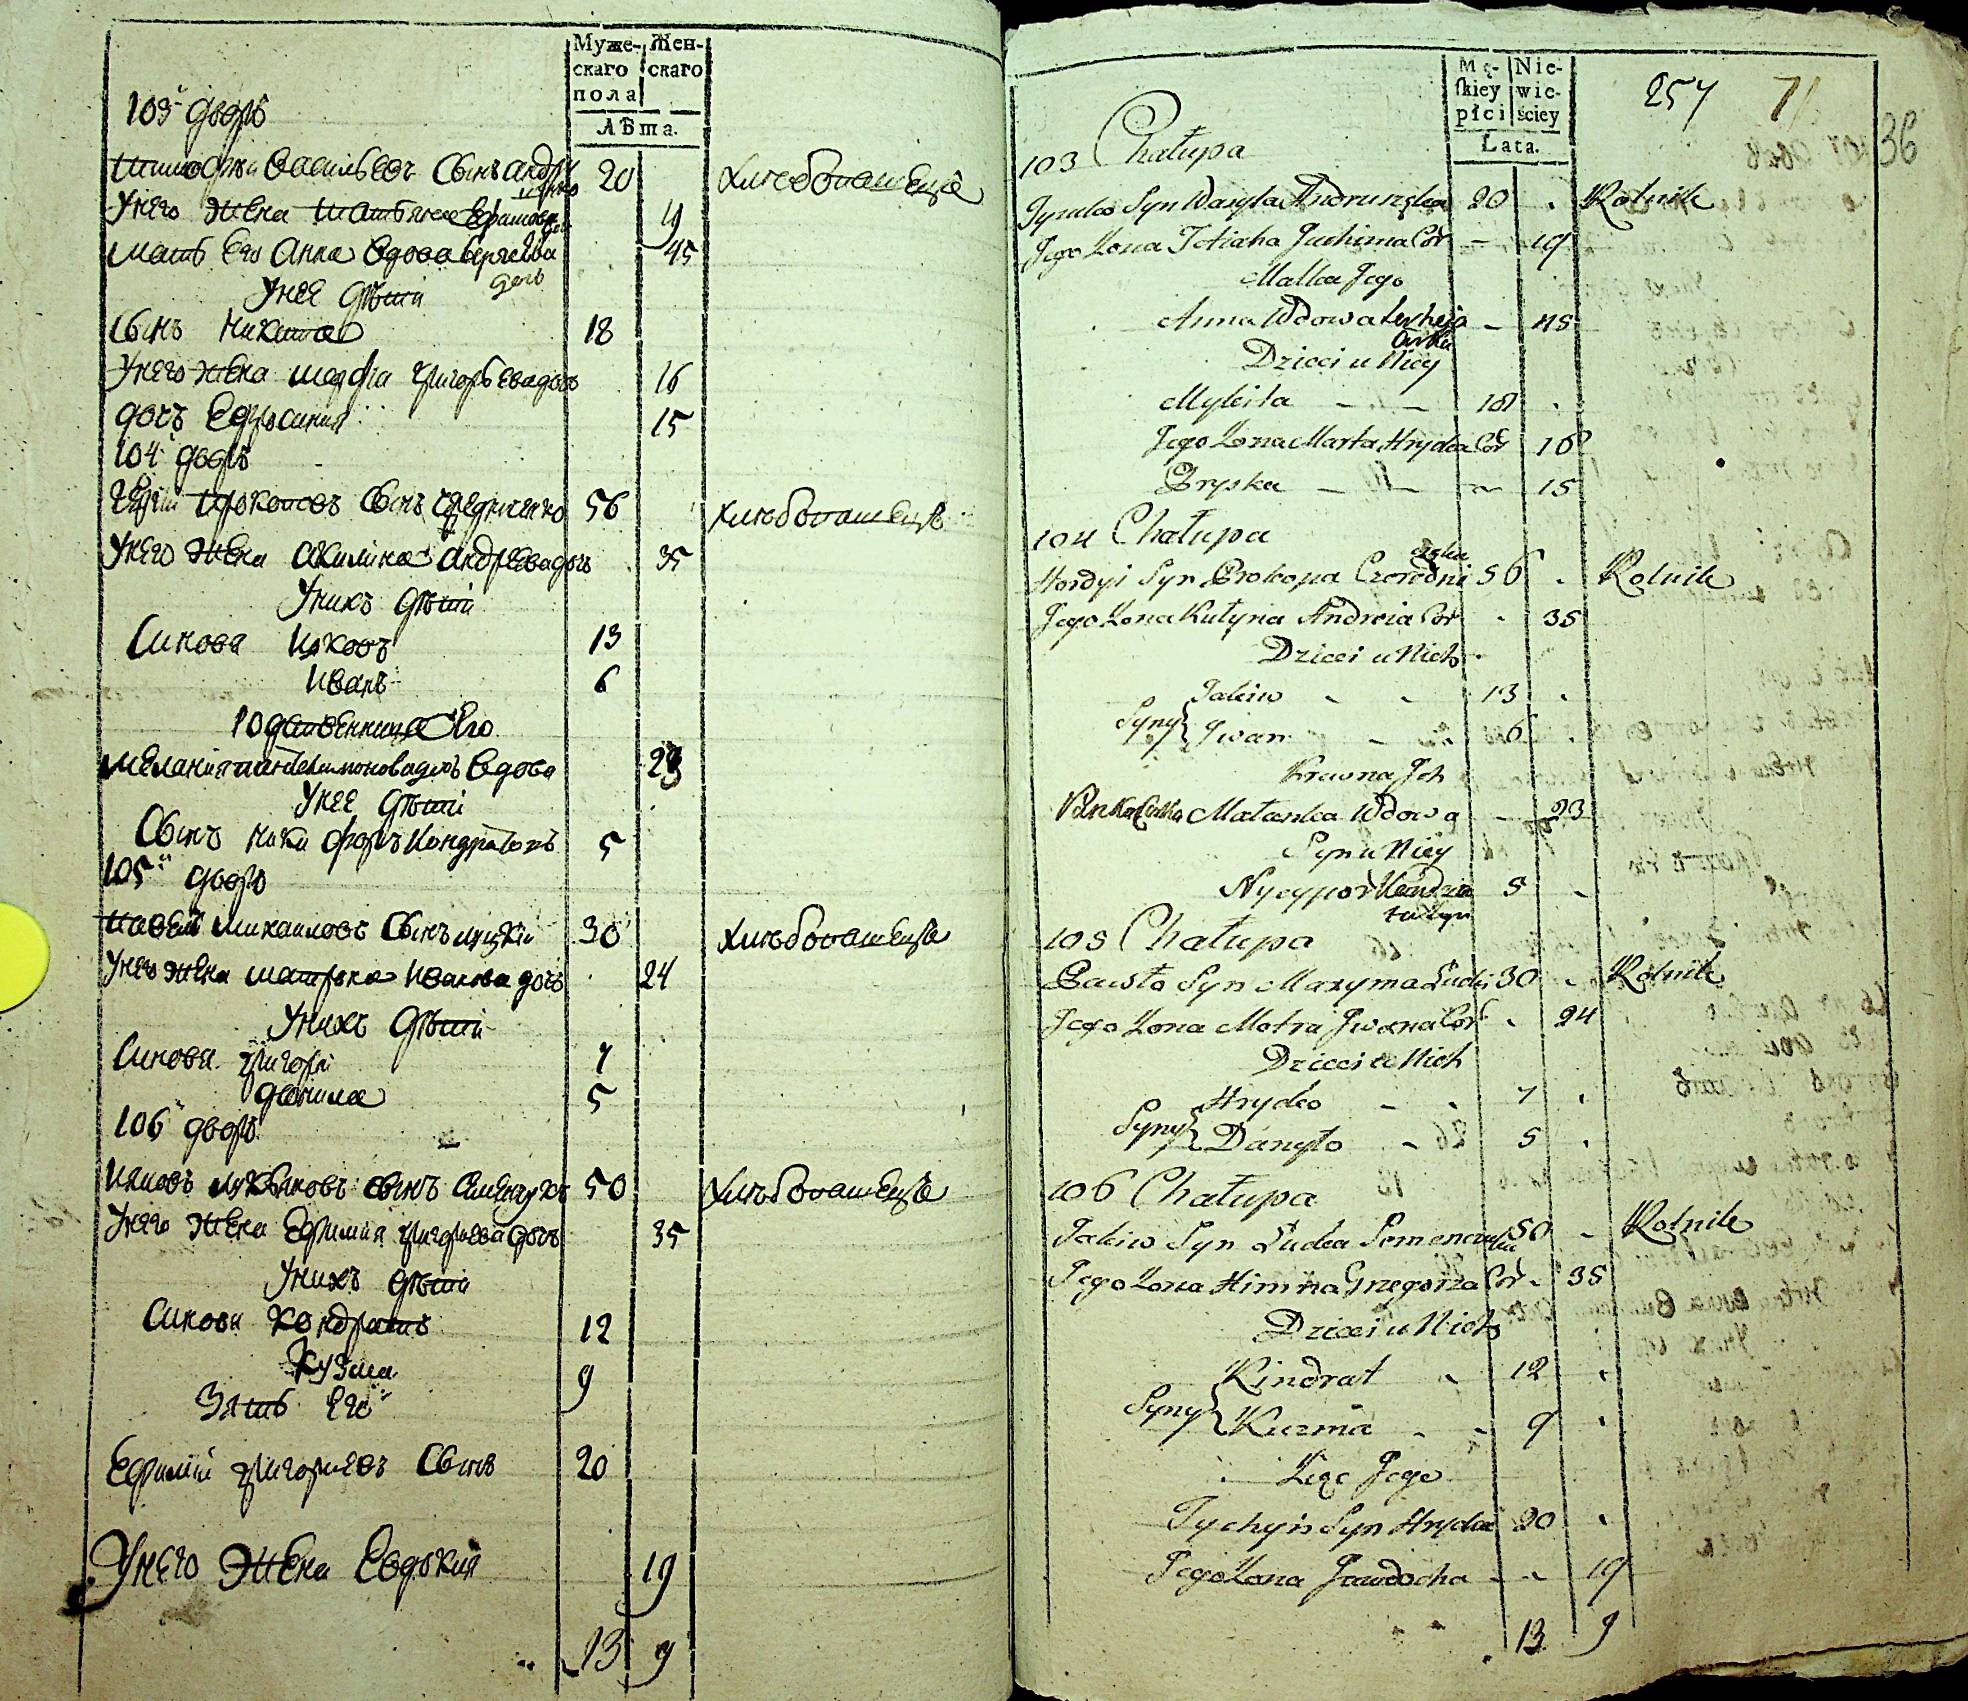 Муже-
скаго
пола
Жен-
скаго
лѣта.
103 дворъ
Тимофей Васильевъ Сынъ Андру
20
хлебопашецъ
У него жена Татьяна Ефимова
19
мать его Анна вдова Сергеева
дочь
45
У нее дѣти
Сынъ Никита
18
У него жена Марфа Григорьева дочь
16
дочь Ефросиния
15
104 дворъ
Прокопов Сынъ
56
хлѣбопашецъ
У него жена Акилина Андреева дочь
35
У нихъ дѣти
Синовя Яковъ
13
Иванъ
6
Родственница Его
Мелания Пантелимонова дочь вдова
23
У нее дѣти
Сынъ Никифоръ Кондратовъ
5
105 дворъ
Павелъ Михаиловъ Сынъ Луцкий
30
хлѣбопашецъ
У него жена Матрона Иванова дочь
24
У нихъ дѣти
Синовя Григори
7
Данила
5
106 дворъ
Яковъ Лукьяновъ сынъ
50
хлѣбопашецъ
У него жена Ефимия Григориева дочь
35
У нихъ дѣти
Синови Кондратъ
12
Кузма
9
Зять Его
Ефимий Григориевъ Сынъ
20
У него жена Евдокия
19
13 9
Mę-
skiey
płci
Nie-
wie-
ściey
Łata.
257 71
36
103 Chałupa
Tymko Syn Wasyla Andruszka 20 Rolnik
Jego Zona Tetiana Juchima Cór 19
Matka Jego
Anna Wdowa Serheja
Curka
45
Dzieci u Niey
Mykita 18
Jego Zona Marta Hrydka Cór 16
Pryska 15
104 Chałupa
Hordyi Syn Prokopa Czeredni
czeka
56 Rolnik
Jego Zona Kulyna Andreia Cór 35
Dzieci u Nich
Jakiw 13
Syny Iwan 6
Krewna Jch
Małanka Wdowa 23
Syn u Niey
Nyczypor Kondra
ta Syn
5
105 Chałupa
Pawło Syn Maxyma Łucki 30 Rolnik
Jego Zona Motra Jwana Cór 24
Dzieci u Nich
Hrydko 7
Syny Danyło 5
106 Chałupa
Jakiw Syn Łucka Semenczuka 50 Rolnik
Jego Zona Himna Grzegorza Cór 35
Dzieci u Nich
Kindrat 12
Syny Kuzma 9
Zięć Jego
Tychyi Syn Hrydka 20
Jego Zona Jawdocha 19
13 9